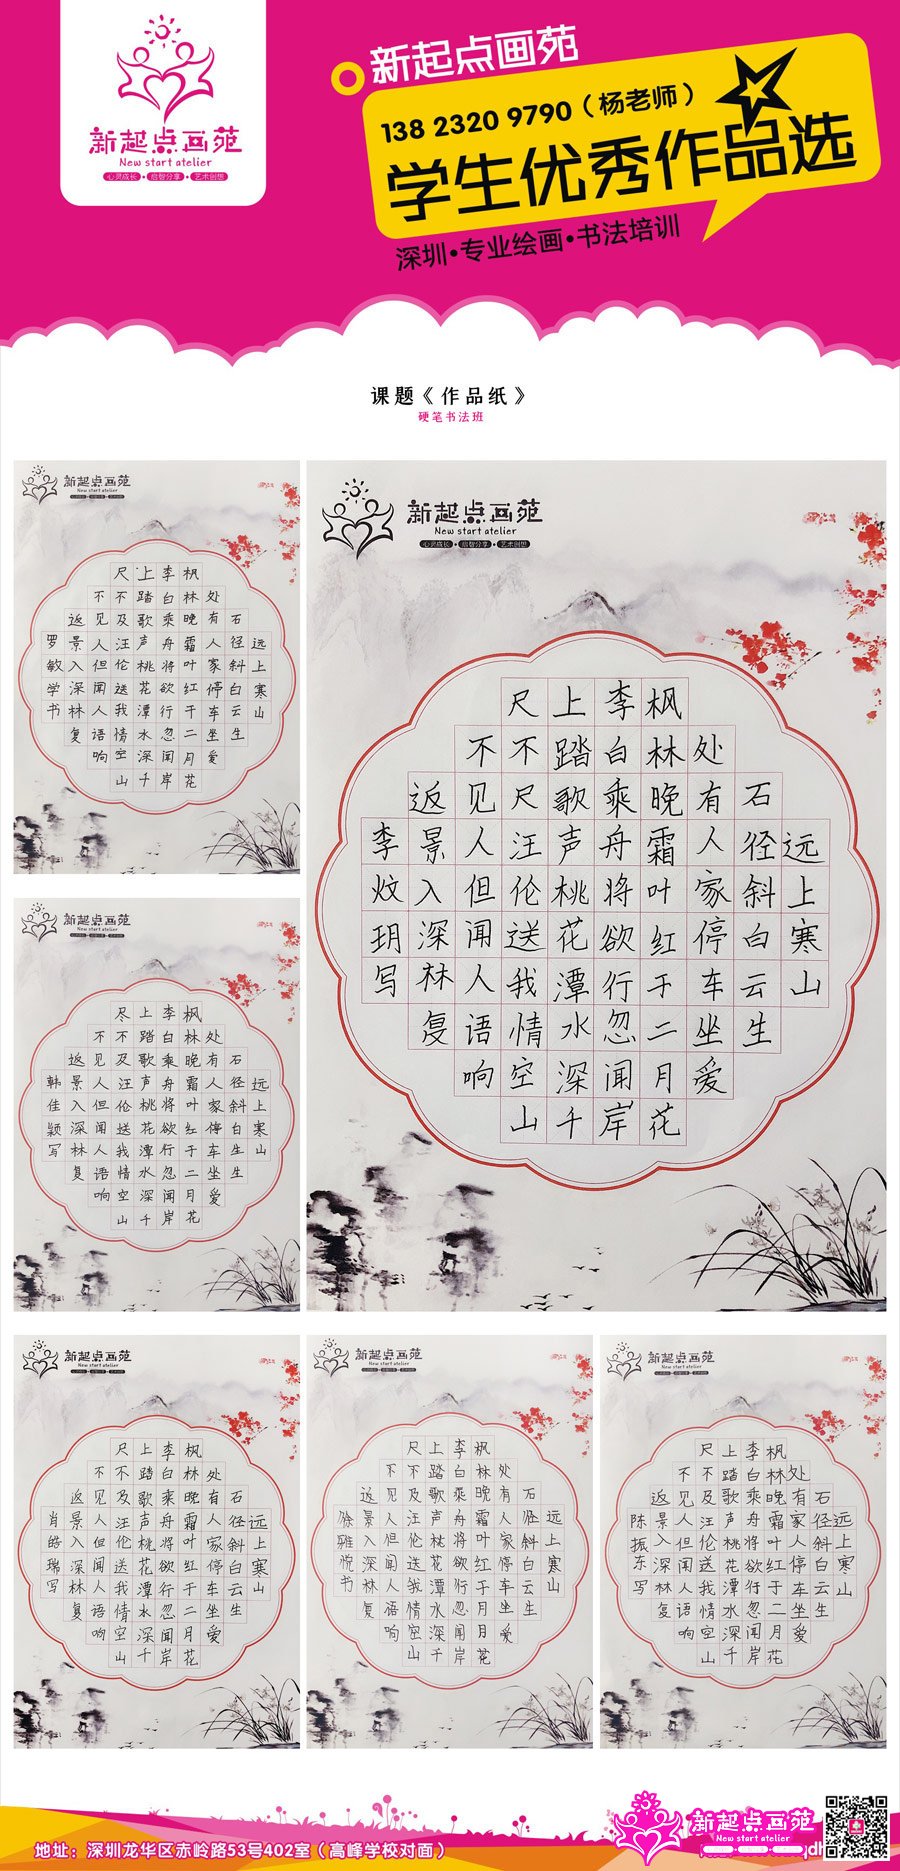 新起点画苑
New start atelier
心灵成长 · 启智分享 · 艺术创想
新起点画苑
138 2320 9790（杨老师）
学生优秀作品选
深圳·专业绘画·书法培训
课题《作品纸》
硬笔书法班
新起点画苑
New start atelier
心灵成长 · 启智分享 · 艺术创想
远上寒山
石径斜白云生
处有人家停车坐爱
枫林晚霜叶红于二月花
李白乘舟将欲行忽闻岸
上踏歌声桃花潭水深千
尺不及汪伦送我情空山
不见人但闻人语响
返景入深林复
罗敏学书
新起点画苑
New start atelier
心灵成长 · 启智分享 · 艺术创想
远上寒山
石径斜白云生
处有人家停车坐爱
枫林晚霜叶红于二月花
李白乘舟将欲行忽闻岸
上踏歌声桃花潭水深千
尺不尺汪伦送我情空山
不见人但闻人语响
返景入深林复
李炆玥写
新起点画苑
New start atelier
心灵成长 · 启智分享 · 艺术创想
远上寒山
石径斜白云生
处有人家停车坐爱
枫林晚霜叶红于二月花
李白乘舟将欲行忽闻岸
上踏歌声桃花潭水深千
尽不及汪伦送我情空山
不见人但闻人语响
返景入深林复
韩佳颖写
新起点画苑
New start atelier
心灵成长 · 启智分享 · 艺术创想
远上寒山
石径斜白云生
处有人家停车坐爱
枫林晚霜叶红于二月花
李白乘舟将欲行忽闻岸
上踏歌声桃花潭水深千
尺不及汪伦送我情空山
不见人但闻人语响
返景入深林复
肖皓瑞写
新起点画苑
New start atelier
心灵成长 · 启智分享 · 艺术创想
远上寒山
石径斜白云生
处有人家停车坐爱
枫林晚霜叶红于月月花
李白乘舟将欲行忽闻岸
上踏歌声桃花潭水深千
尺不及汪伦送我情空山
不见人但闻人语响
返景入深林复
徐雅悦书
新起点画苑
New start atelier
心灵成长 · 启智分享 · 艺术创想
远上寒山
石径斜白云生
处有家人停车坐爱
枫林晚霜叶红于二月花
李白乘舟将欲行忽闻岸
上踏歌声桃花潭水深千
尺不及汪伦送我情空山
不见人但闻人语响
返景入深林复
陈振东写
地址：深圳龙华区赤岭路53号402室（高峰学校对面）
新起点画苑
New start atelier